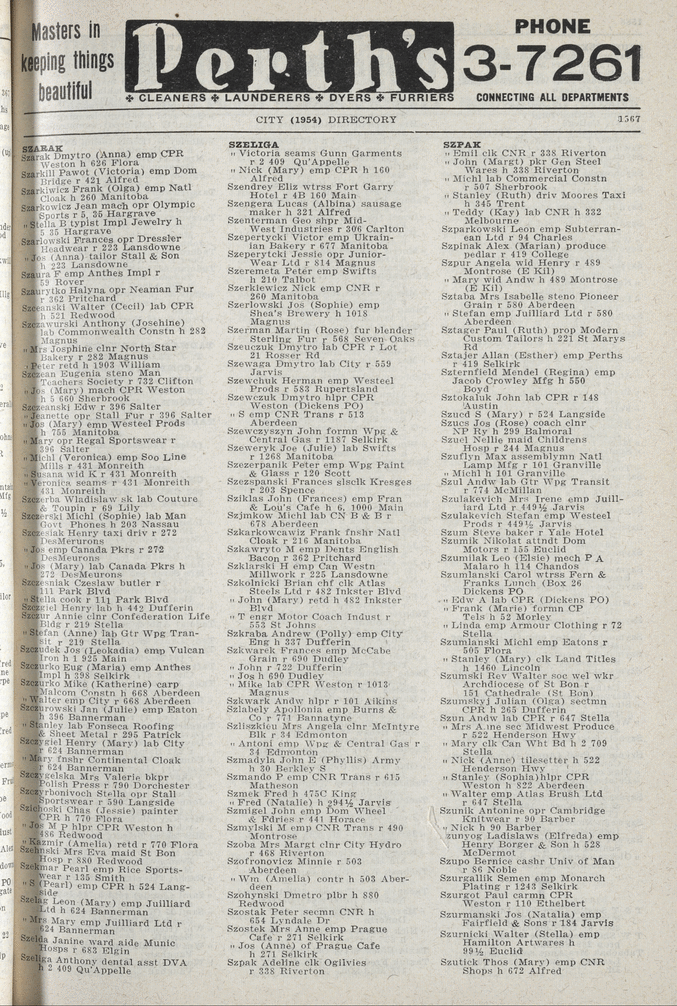 Masters in
keeping things
beautiful
Perth's
✤ CLEANERS ✤ LAUNDERERS ✤ DYERS ✤ FURRIERS
PHONE
3-7261
CONNECTING ALL DEPARTMENTS
CITY (1954) DIRECTORY 3567
SZARAK
Szarak Dmytro (Anna) emp CPR
Weston h 626 Flora
Szarkill Pawot (Victoria) emp Dom
Bridge r 421 Alfred
Szarkiwicz Frank (Olga) emp Natl
Cloak h 260 Manitoba
Szarkowicz Jean mach opr Olympic
Sports r 5, 35 Hargrave
" Stella B typist Impl Jewelry h
5 35 Hargrave
Szarlowski Frances opr Dressler
Headwear r 223 Lansdowne
" Jos (Anna) tailor Stall & Son
h 223 Lansdowne
Szaura F emp Anthes Impl r
59 Rover
Szaurytko Halyna opr Neaman Fur
r 362 Pritchard
Szceanski Walter (Cecil) lab CPR
h 521 Redwood
Szczawurski Anthony (Josehine)
lab Commonwealth Constn h 282
Magnus
" Mrs Josphine clnr North Star
Bakery r 282 Magnus
" Peter retd h 1903 William
Szczean Eugenia steno Man
Teachers Society r 732 Clifton
" Jos (Mary) mach CPR Weston
h 5 660 Sherbrook
Szczeanskj Edw r 396 Salter
" Jeanette opr Stall Fur r 396 Salter
" Jos (Mary) emp Westeel Prods
h 755 Manitoba
" Mary opr Regal Sportswear r
396 Salter
" Michl (Veronica) emp Soo Line
Mills r 431 Monreith
" Susana wid K r 431 Monreith
" Veronica seams r 431 Monreith
431 Monreith
Szczerba Wladislaw sk lab Couture
& Toupin r 69 Lily
Szczerski Michl (Sophie) lab Man
Govt Phones h 203 Nassau
Szczesiak Henry taxi driv r 272
DesMerurons
" Jos emp Canada Pkrs r 272
DesMeurons
" Jos (Mary) lab Canada Pkrs h
272 DesMeurons
Szczesniak Czeslaw butler r
111 Park Blvd
" Stella cook r 111 Park Blvd
Szczgiel Henry lab h 442 Dufferin
Szczur Annie clnr Confederation Life
Bldg r 219 Stella
" Stefan (Anne) lab Gtr Wpg Tran-
sit r 219 Stella
Szczudek Jos (Leokadia) emp Vulcan
Iron h 1 925 Main
Szczurko Eug (Maria) emp Anthes
Impl h 398 Selkirk
Szczurko Mike (Katherine) carp
Malcom Constn h 668 Aberdeen
" Walter emp City r 668 Aberdeen
Szczurowski Jan (Julie) emp Eaton
h 396 Bannerman
" Stanley lab Fonseca Roofing
& Sheet Metal r 295 Patrick
Szczygiel Henry (Mary) lab City
r 624 Bannerman
" Mary fnshr Continental Cloak
r 624 Bannerman
Szczygelska Mrs Valeria bkpr
Polish Press r 790 Dorchester
Szczyrbonivoch Stella opr Stall
Sportswear r 590 Langside
Szichoski Chas (Jessie) painter
CPR h 770 Flora
" Jos M P hlpr CPR Weston h
486 Redwood
" Kazmir (Amelia) retd r 770 Flora
Szehinski Mrs Eva maid St Bon
Hosp r 880 Redwood
Szekmar Pearl emp Rice Sports-
wear r 135 Smith
" S (Pearl) emp CPR h 524 Lang-
side
Szelag Leon (Mary) emp Juilliard
Ltd h 624 Bannerman
" Mrs Mary emp Juilliard Ltd r
624 Bannerman
Szelda Janine ward aide Munic
Hosps r 683 Elgin
Szeliga Anthony dental asst DVA
h 2 409 Qu'Appelle
SZELIGA
" Victoria seams Gunn Garments
r 2 409 Qu'Appelle
" Nick (Mary) emp CPR h 160
Alfred
Szendrey Eliz wtrss Fort Garry
Hotel r 4B 160 Main
Szengera Lucas (Albina) sausage
maker h 321 Alfred
Szenterman Geo shpr Mid-
West Industries r 306 Carlton
Szepertycki Victor emp Ukrain-
ian Bakery r 677 Manitoba
Szeperytcki Jessie opr Junior-
Wear Ltd r 814 Magnus
Szeremeta Peter emp Swifts
h 210 Talbot
Szerkiewicz Nick emp CNR r
260 Manitoba
Szerlowski Jos (Sophie) emp
Shea's Brewery h 1018
Magnus
Szerman Martin (Rose) fur blender
Sterling Fur r 568 Seven Oaks
Szeuczuk Dmytro lab CPR r Lot
21 Rosser Rd
Szewaga Dmytro lab City r 559
Jarvis
Szewchuk Herman emp Westeel
Prods r 583 Rupertsland
Szewczuk Dmytro hlpr CPR
Weston (Dickens PO)
" S emp CNR Trans r 513
Aberdeen
Szewczyszyn John formn Wpg &
Central Gas r 1187 Selkirk
Szeweryk Joe (Julie) lab Swifts
r 1268 Manitoba
Szezerpanik Peter emp Wpg Paint
& Glass r 120 Scott
Szezspanski Frances slsclk Kresges
r 203 Spence
Sziklas John (Frances) emp Fran
& Lou's Cafe h 6, 1000 Main
Szjmkow Michl lab CN B & B r
678 Aberdeen
Szkarkowcawiz Frank fnshr Natl
Cloak r 216 Manitoba
Szkawryto M emp Dents English
Bacon r 362 Pritchard
Szklarski H emp Can Westn
Millwork r 225 Lansdowne
Szkolnicki Brian chf clk Atlas
Steels Ltd r 482 Inkster Blvd
" John (Mary) retd h 482 Inkster
Blvd
" T engr Motor Coach Indust r
553 St Johns
Szkraba Andrew (Polly) emp City
Eng h 337 Dufferin
Szkwarek Frances emp McCabe
Grain r 690 Dudley
" John r 722 Dufferin
" Jos h 690 Dudley
" Mike lab CPR Weston r 1013
Magnus
Szkwark Andw hlpr r 101 Aikins
Szlabely Apollonia emp Burns &
Co r 771 Bannatyne
Szliszkieu Mrs Angela clnr McIntyre
Blk r 34 Edmonton
" Antoni emp Wpg & Central Gas r
34 Edmonton
Szmadyla John E (Phyllis) Army
h 30 Berkley S
Szmando P emp CNR Trans r 615
Matheson
Szmek Fred h 475C King
" Fred (Natalie) h 294½ Jarvis
Szmigel John emp Dom Wheel
& Fdries r 441 Horace
Szmylski M emp CNR Trans r 490
Montrose
Szoba Mrs Margt clnr City Hydro
r 468 Riverton
Szofronowicz Minnie r 503
Aberdeen
" Wm (Amelia) contr h 503 Aber-
deen
Szohynski Dmetro plbr h 880
Redwood
Szostak Peter secmn CNR h
654 Lyndale Dr
Szostek Mrs Anne emp Prague
Cafe r 271 Selkirk
" Jos (Anne) of Prague Cafe
h 271 Selkirk
Szpak Adeline clk Ogilvies
r 338 Riverton
SZPAK
" Emil clk CNR r 338 Riverton
" John (Margt) pkr Gen Steel
Wares h 338 Riverton
" Michl lab Commercial Constn
r 507 Sherbrook
" Stanley (Ruth) driv Moores Taxi
h 345 Trent
" Teddy (Kay) lab CNR h 332
Melbourne
Szparkowski Leon emp Subterran-
ean Ltd r 94 Charles
Szpinak Alex (Marian) produce
pedlar r 419 College
Szpur Angela wid Henry r 489
Montrose (E Kil)
" Mary wid Andw h 489 Montrose
(E Kil)
Sztaba Mrs Isabelle steno Pioneer
Grain r 580 Aberdeen
" Stefan emp Juilliard Ltd r 580
Aberdeen
Sztager Paul (Ruth) prop Modern
Custom Tailors h 221 St Marys
Rd
Sztajer Allan (Esther) emp Perths
r 419 Selkirk
Szternfield Mendel (Regina) emp
Jacob Crowley Mfg h 550
Boyd
Sztokaluk John lab CPR r 148
Austin
Szucd S (Mary) r 524 Langside
Szucs Jos (Rose) coach clnr
NP Ry h 299 Balmoral
Szuel Nellie maid Childrens
Hosp r 244 Magnus
Szuflyn Max assemblymn Natl
Lamp Mfg r 101 Granville
" Michl h 101 Granville
Szul Andw lab Gtr Wpg Transit
r 774 McMillan
Szulakevich Mrs Irene emp Juill-
iard Ltd r 449½ Jarvis
Szulakevich Stefan emp Westeel
Prods r 449½ Jarvis
Szum Steve baker r Yale Hotel
Szumik Nikolat attndt Dom
Motors r 155 Euclid
Szumilak Leo (Elsie) mech P A
Malaro h 114 Chandos
Szumlanski Carol wtrss Fern &
Franks Lunch (Box 26
Dickens PO
" Edw A lab CPR (Dickens PO)
" Frank (Marie) formn CP
Tels h 52 Morley
" Linda emp Armour Clothing r 72
Stella
Szumlanski Michl emp Eatons r
505 Flora
" Stanley (Mary) clk Land Titles
h 1460 Lincoln
Szumski Rev Walter soc wel wkr
Archdiocese of St Bon r
151 Cathedrale (St Bon)
Szumskyj Julian (Olga) sectmn
CPR h 265 Dufferin
Szun Andw lab CPR r 647 Stella
" Mrs Anne sec Midwest Produce
r 522 Henderson Hwy
" Mary clk Can Wht Bd h 2 709
Stella
" Nick (Anne) tilesetter h 522
Henderson Hwy
" Stanley (Sophia) hlpr CPR
Weston h 822 Aberdeen
" Walter emp Atlas Brush Ltd
r 647 Stella
Szunik Antonine opr Cambridge
Knitwear r 90 Barber
" Nick h 90 Barber
Szunyog Ladyslaws (Elfreda) emp
Henry Borger & Son h 528
McDermot
Szupo Bernice cashr Univ of Man
r 86 Noble
Szurgallik Semen emp Monarch
Plating r 1243 Selkirk
Szurgot Paul carmn CPR
Weston r 110 Ethelbert
Szurmanski Jos (Natalia) emp
Fairfield & Sons r 184 Jarvis
Szurnicki Walter (Stella) emp
Hamilton Artwares h
99½ Euclid
Szutick Thos (Mary) emp CNR
Shops h 672 Alfred